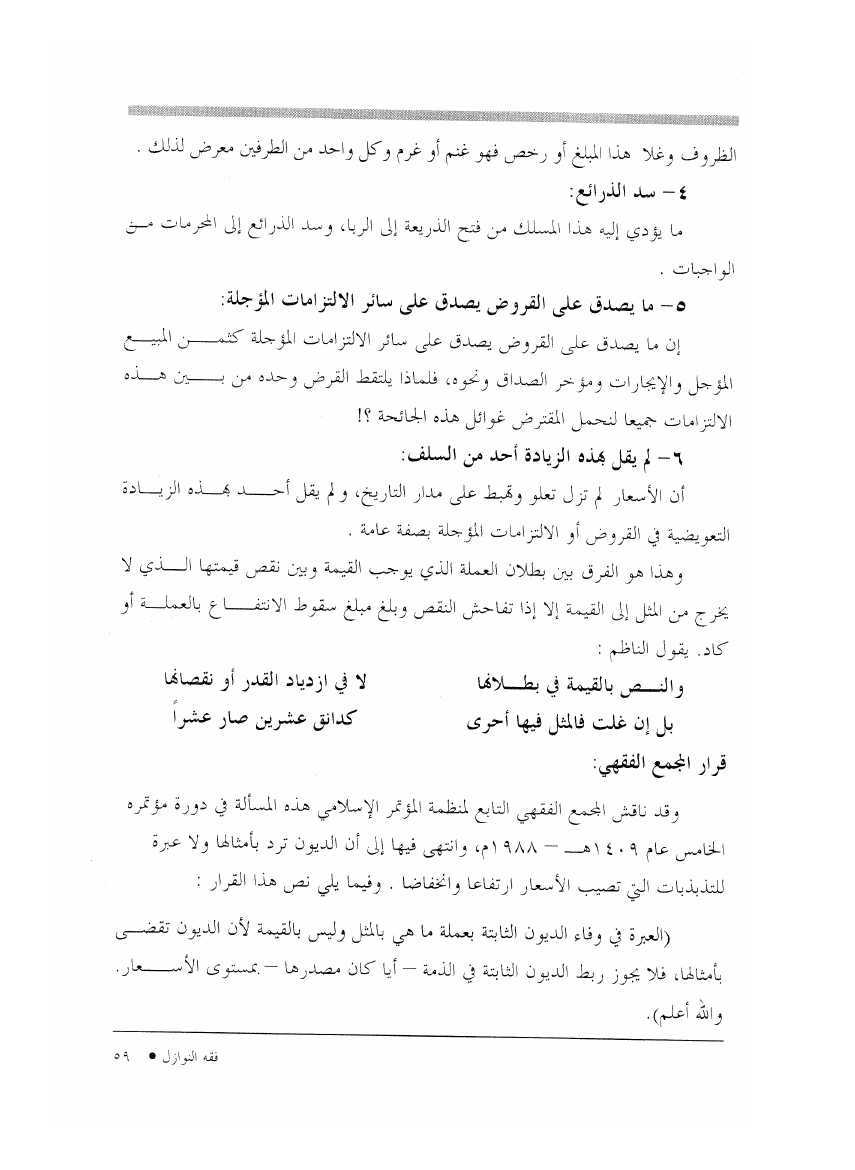 الظروف وغلا هذا المبلغ أو رخص فهو غنم أو غرم وكل واحد من الطرفين معرض لذلك .
٤- سد الذرائع:
ما يؤدي إليه هذا المسلك من فتح الذريعة إلى الربا، وسد الذرائع إلى المحرمات مـن
الواجبات .
٥- ما يصدق على القروض يصدق على سائر الالتزامات المؤجلة:
إن ما يصدق على القروض يصدق على سائر الالتزامات المؤجلة كثمـــن المبيـــع
المؤجل والإيجارات ومؤخر الصداق ونحوه، فلماذا يلتقط القرض وحده من بـــين هـــذه
الالتزامات جميعا لنحمل المقترض غوائل هذه الجائحة ؟!
٦- لم يقل بهذه الزيادة أحد من السلف:
أن الأسعار لم تزل تعلو وتهبط على مدار التاريخ، ولم يقل أحـــد بهـــذه الزيـــادة
التعويضية في القروض أو الالتزامات المؤجلة بصفة عامة .
وهذا هو الفرق بين بطلان العملة الذي يوجب القيمة وبين نقص قيمتها الـــذي لا
يخرج من المثل إلى القيمة إلا إذا تفاحش النقص وبلغ مبلغ سقوط الانتفـــاع بالعملـــة أو
كاد. يقول الناظم :
والنـــص بالقيمة في بطـــلانها لا في ازدياد القدر أو نقصانها
بل إن غلت فالمثل فيها أحرى كدانق عشرين صار عشراً
قرار المجمع الفقهي:
وقد ناقش المجمع الفقهي التابع لمنظمة المؤتمر الإسلامي هذه المسألة في دورة مؤتمره
الخامس عام ١٤٠٩هـــ – ١٩٨٨م، وانتهى فيها إلى أن الديون ترد بأمثالها ولا عبرة
للتذبذبات التي تصيب الأسعار ارتفاعا وانخفاضا . وفيما يلي نص هذا القرار :
(العبرة في وفاء الديون الثابتة بعملة ما هي بالمثل وليس بالقيمة لأن الديون تقضـــى
بأمثالها، فلا يجوز ربط الديون الثابتة في الذمة – أيا كان مصدرها – بمستوى الأســـعار.
والله أعلم).
فقه النوازل • ٥٩